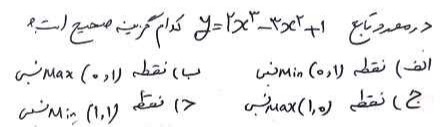 در مورد تابع y=2x³-3x²+1 کدام گزینه صحیح است؟
الف) نقطه (0,1) Min نسبی ب) نقطه (0,1) Max نسبی
ج) نقطه (1,0) Max نسبی د) نقطه (1,1) Min نسبی